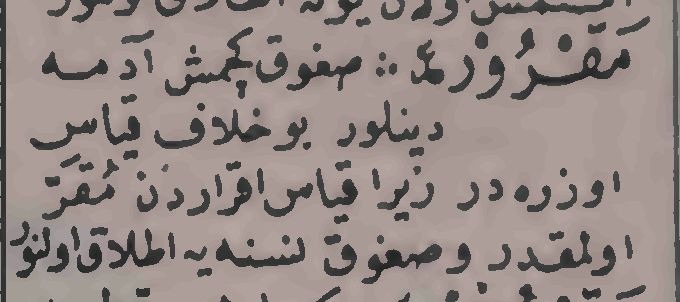 مَقْرُورْ صغوق كچمش آدمه
دينلور بو خلاف قياس
اوزره در زيرا قياس اقراردن مُقَرّ
اولمقدر و صغوق نسنه يه اطلاق اولنور